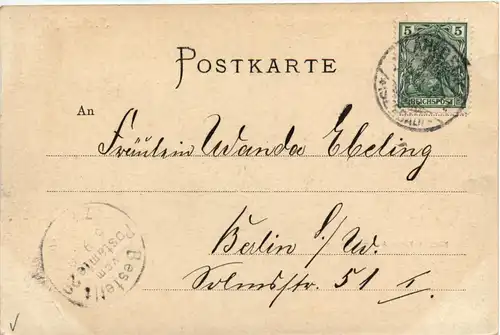 5
REICHSPOST
POSTKARTE
An
Fräulein Wanda Ebeling
Berlin S/W.
Solmsstr. 51 I.
Bestellt
vom
Postamte